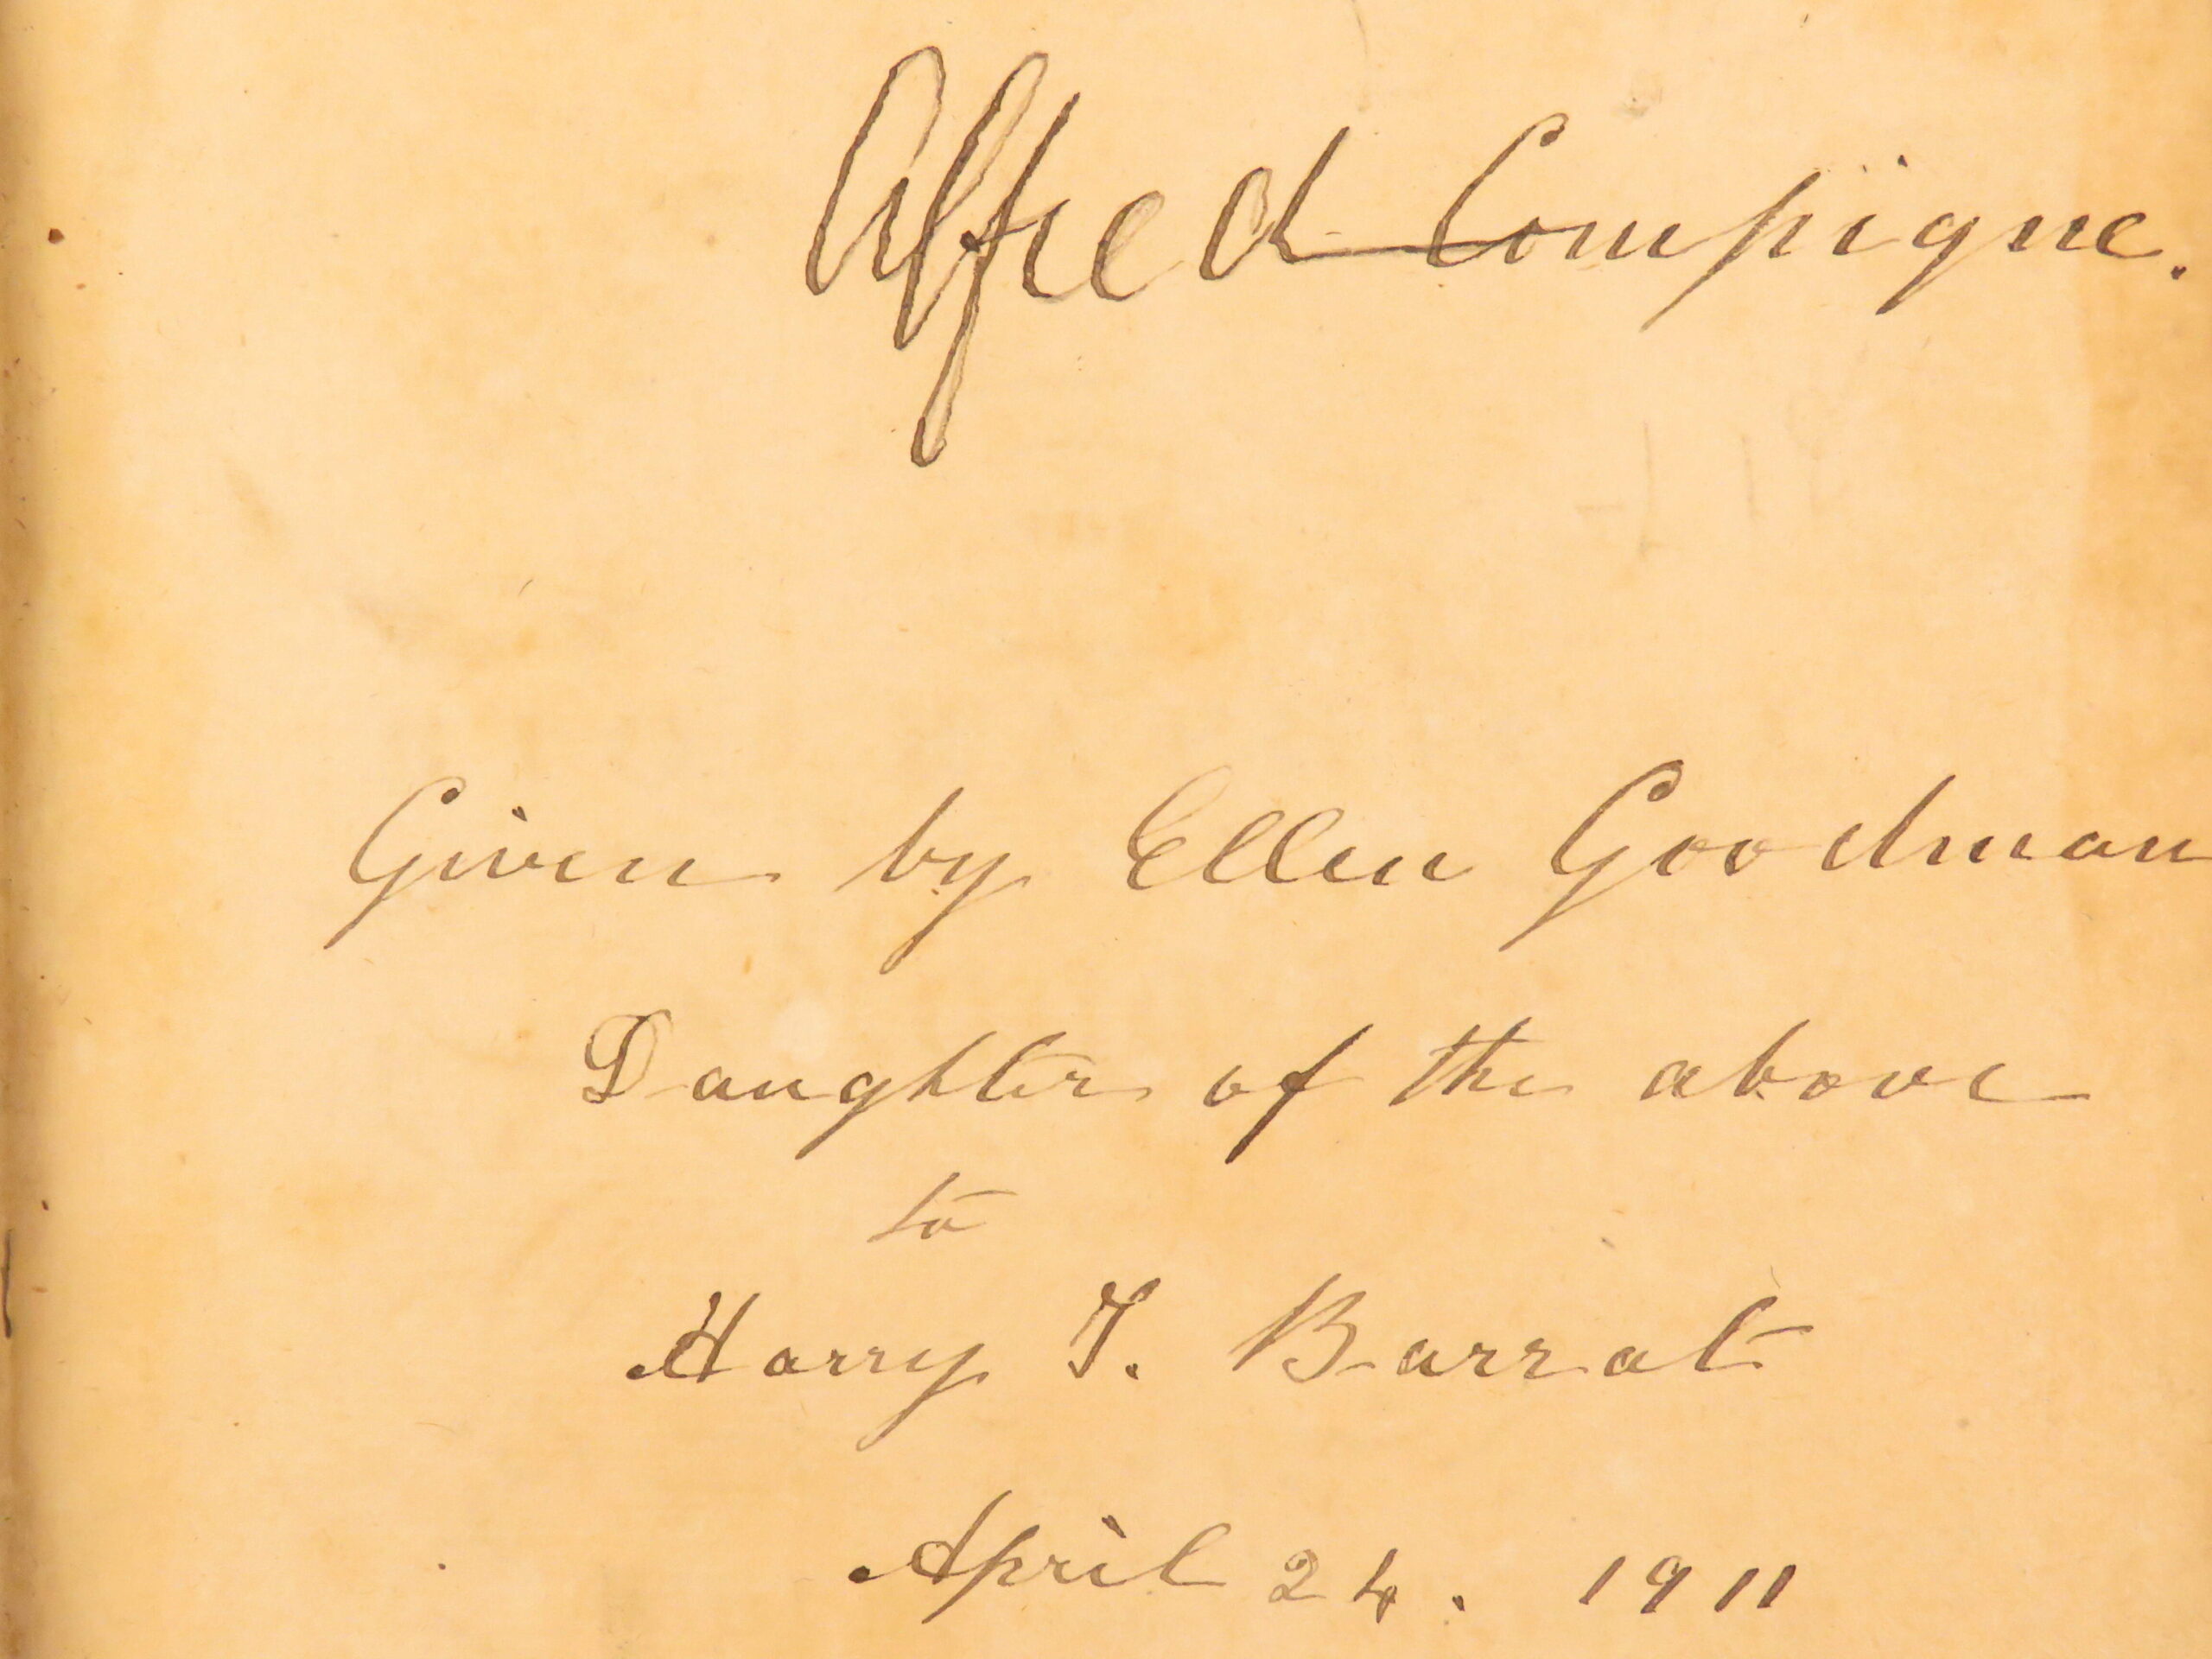 Alfred Compigne.
Given by Ellen Goodman
Daughter of the above
to
Harry T. Barrat
April 24. 1911